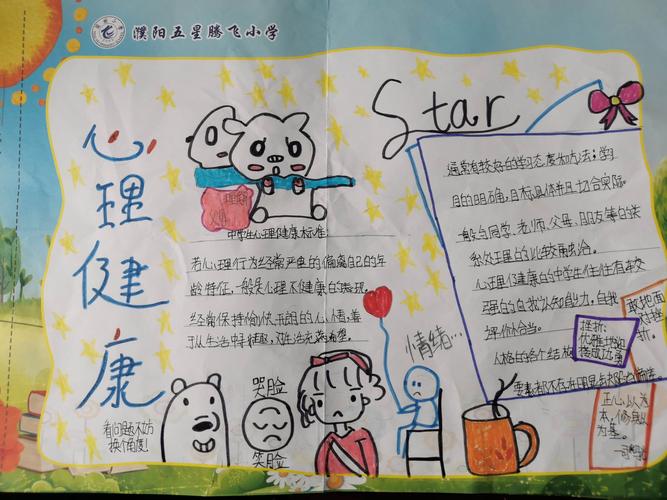 濮阳五星腾飞小学
心理健康
Star
中学生心理健康标准:
若心理行为经常严重的偏离自己的年
龄特征,一般是心理不健康的表现。
经常保持愉快、开朗的心情,善
于从生活中寻找乐趣,对生活充满希望。
通常有较好的学习态度和方法;学习
目的明确,目标具体并且切合实际。
一般与同学、老师、父母、朋友等的关
系处理的比较融洽。
心理健康的中学生往往有较
强的自我认知能力,自我
评价恰当。
人格的各个结构
要素都不存在明显
敢地面
对挫
折。
挫折:
优雅地如
接成功
情绪…
哭脸
笑脸
看问题不妨
换个角度!
正心以为
本,修身以
为基。